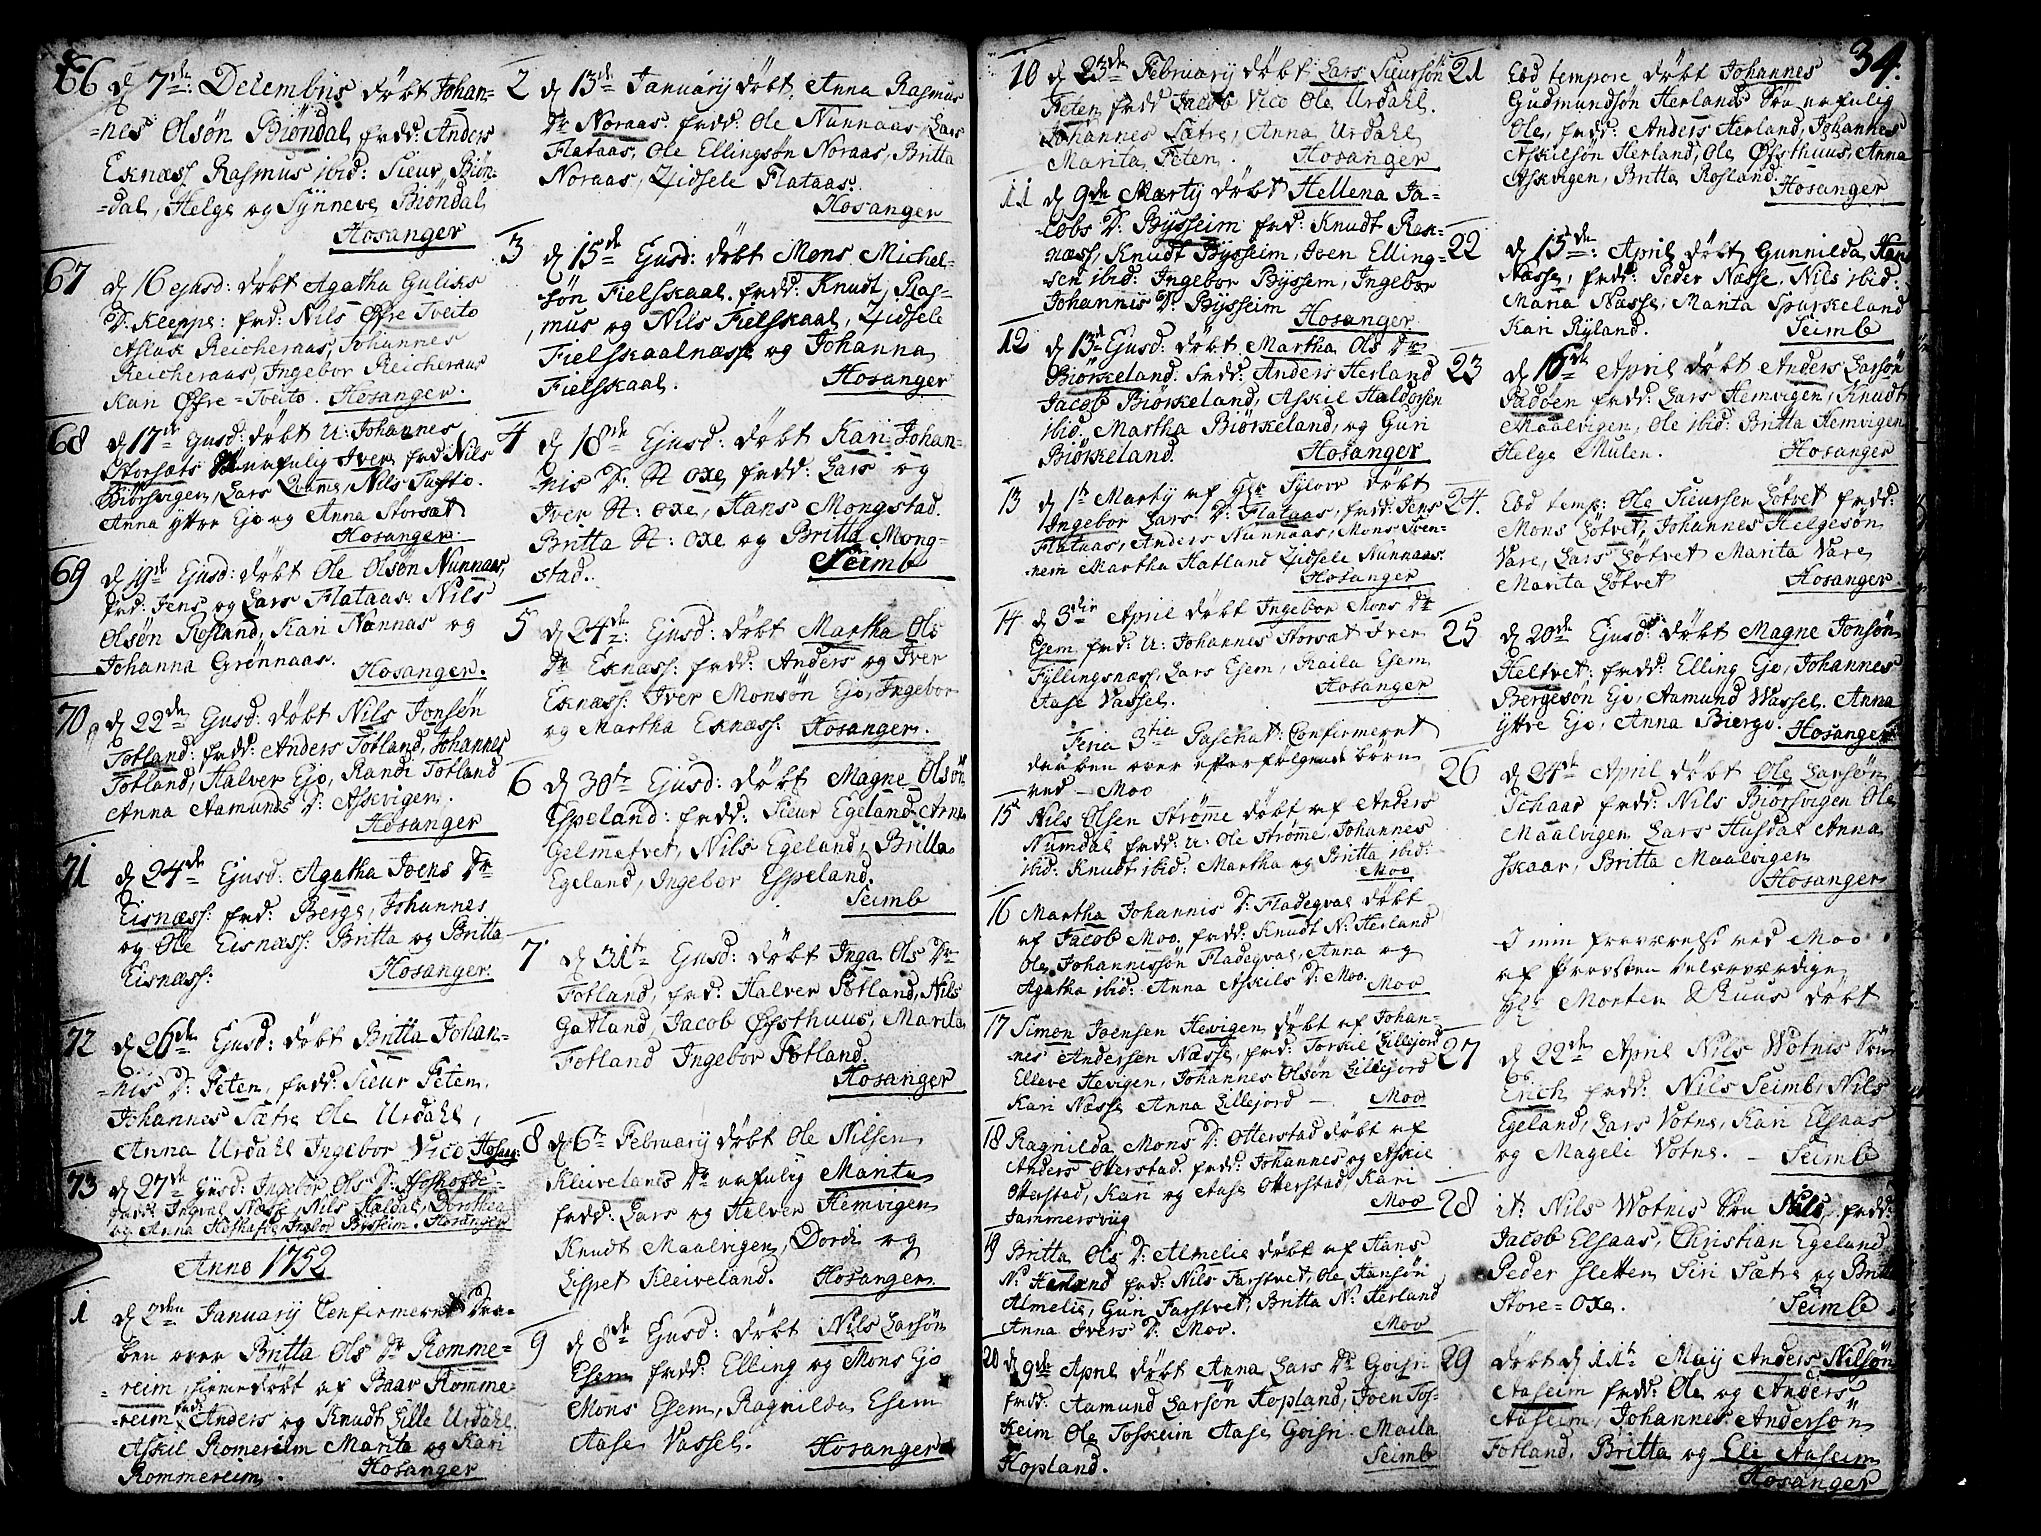 66 d 7de: Decembris døbt Johan-
-nes Olsøn Biøndal, fadd: Anders
Eknæss Rasmus ibid: Sieur Biøn-
-dal, Helge og Synneve Biøndal
Hosanger
67 d 16 ejusd: døbt Agatha Guliks
D: Kleppe: fad: Nils Øfre Tveito
Aslak Reicheraas, Johannes
Reicheraas, Ingebor Reicheraas
Kari Øfre=Tveito. Hosanger.
68 d 17de Ejusd: døbt U: Johannes
Storsæts Iver, fad Nils
Biørsvigen, Lars Nils
Anna yttre Ejo og Anna Storsæt
Hosanger
69 d 19de Ejusd: døbt Ole Olsøn Nunnaas,
fad: Jens og Lars Flataas. Nils
Olsøn Rosland, Kari Nannas og
Johanna Grønnaas. Hosanger.
70 d 22de Ejusd: døbt Nils Jonsøn
Totland: fadd: Anders Totland, Johannes
Totland, Halver Ejo, Randi Totland
Anna Aamunds D: Askvigen.
Hosanger
71 d 24de Ejusd: Agatha Joens Dr
Eisnæss: fad: Berge, Johannes
og Ole Eisnæss: Britta og Britta
Eisnæss: Hosanger.
72 d 26de Ejusd: døbt Britta Johan-
-nis D: Feten, fadd: Sieur Feten,
Johannes Sætre Ole Urdahl,
Anna Urdahl Ingebor Vico Hosang:
73 d 27de Ejusd: Ingebor Ols D:
Ingval Næsse, Nils Dorothea
og Anna Ingbor Bysseim. Hosanger
Anno 1752
1 d 2den January Confirmeret Daa-
ben over Britta Ols Dr Romme-
-reim, hiemedøbt af Baar Romme-
-reim fadd: Anders og Knudt Lille Urdahl,
Askil Romereim Marita og Kari
Rommereim. Hosanger
2 d 13de January døbt Anna Rasmus
Dr Noraas. fadd: Ole Nunnaas, Lars
Flataas, Ole Ellingsøn Noraas, Britta
Noraas, Zidsele Flataas.
Hosanger
3 d 15de Ejusd: døbt Mons Michel-
søn Fielskaal, fadd: Knudt, Ras-
mus og Nils Fielskaal, Zidsele
Fielskaalnæss og Johanna
Fielskaal. Hosanger
4 d 18de Ejusd: døbt Kari Johan-
-nis D: St oxe, fadd: Lars og
Iver St: oxe, Hans Mongstad.
Britta St: oxe og Britta Mong-
stad. Seimb
5 d 24de: Ejusd: døbt Martha Ols
Dr Eknæss: fadd: Anders og Iver
Eknæss: Iver Monsøn Ejo, Ingebor
og Martha Eknæss: Hosanger.
6 d 30te Ejusd: døbt Magne Olsøn
Espeland: fadd: Sieur Egeland, Arne
Gelmetvet, Nils Egeland, Britta
Egeland, Ingebor Espeland.
Seimb
7 d 31te Ejusd: døbt Inga Ols Dr
Fotland, fad: Halver Fotland, Nils
Gatland, Jacob Øfsthuus, Marita
Fotland Ingebor Fotland.
Hosanger
8 d 6te February døbt Ole Nilsen
Kleivelands Dr Marita
fadd: Lars og Halver Hemvigen
Knudt Maalvigen, Dordi og
Lispet Kleiveland. Hosanger
9 d 8de Ejusd: døbt Nils Larsøn
Esem fadd: Elling og Mons Ejo
Mons Esem, Ragnilda Esem
Aase Vassel. Hosanger
34.
10 d 23de February døbt Lars Sieursøn
Feten fadd Jacob Vico Ole Urdahl.
Johannes Sætre, Anna Urdahl
Marita Feten. Hosanger
11 d 9de Marty døbt Hellena Ja-
cobs D: Bysseim fad: Knudt Rek-
næss, Knudt Bysseim, Iven Elling-
sen ibid: Ingebor Byssem, Ingebor
Johannis D: Bysseim Hosanger
12 d 13de Ejusd: døbt Martha Ols Dr
Biørkeland: fadd: Anders Herland
Jacob Biørkeland, Askil Haldorsen
ibid. Martha Biørkeland, og Guri
Biørkeland. Hosanger
13 d 1te Marty af Hr døbt
Ingebor Lars D: Flataas, fadd: Jens
Flataas, Anders Nunnaas, Mons
Martha Hatland Zidsele Nunnaas.
Hosanger
14 d 3die April døbt Ingebor Mons Dr
Esem, fad: U: Johannes Storsæt Iver
Fyllingsnæss, Lars Esem, Esem
Aase Vassel. Hosanger
Feria 3tia Paschat: Confirmeret
daaben over efterfølgende børn
ved — Moo
15 Nils Olsen Strøme døbt af Anders
Numdal fadd: U: Ole Strøme Johannes
ibid: Knudt ibid: Martha og Britta ibid:
Moo
16 Martha Johannis D: Fladeqval døbt
af Jacob Moo. fadd: Knudt N: Herland
Ole Johannissøn Fladeqval, Anna og
Agatha ibid: Anna Askils D: Moo. Moo
17 Simon Joensen Hevigen døbt af Johan-
nes Andersen Næsse, fad: Torkil Lillejord
Elleve Hevigen, Johannes Olsøn Lillejord
Kari Næsse Anna Lillejord — Moo
18 Ragnilda Mons D: Otterstad døbt af
Anders Otterstad. fadd: Johannes og Askil
Otterstad, Kari og Aase Otterstad, Kari
Hammersviig Moo
19 Britta Ols D: Almelie døbt af Hans
N: Herland fad: Nils Farstvet, Ole Hansøn
Almelie, Guri Farstvet, Britta N: Herland
Anna Ivers D: Moo. Moo
20 d 9de April døbt Anna Lars Dr
fadd: Aamund Larsøn Hopland, Joen Tos-
keim Ole Toskeim Aase Maila
Hopland. Seimb
21 Eod tempore døbt Johannes
Gudmundsøn Herlands Søn
Ole, fad: Anders Herland, Johannes
Askilsøn Herland, Ole Øfsthuus, Anna
Askvigen, Britta Rosland. Hosanger
22 d 15de: April døbt Gunnilda Hans
Næsse, fadd: Peder Næsse, Nils ibid:
Maria Næsse, Marita Spurkeland
Kari Ryland. Seimb
23 d 16de April døbt Anders Larsøn
Padøen fadd: Lars Hemvigen, Knudt
Maalvigen, Ole ibid: Britta Hemvigen
Helge Mulen. Hosanger
24. Eod temp: Ole Sieursen Løtvet fadd:
Mons Løtvet, Johannes Helgesøn
Vare, Lars Løtvet Marita Vare
Marita Løtvet Hosanger
25 d 20de Ejusd: døbt Magne Jonsøn
Heltvet; fadd: Elling Ejo, Johannes
Bergeson Ejo, Aamund Wassel. Anna
yttre Ejo, Anna Biergo. Hosanger
26 d 24de April døbt Ole Larsøn
Schaar fadd: Nils Biørsvigen Ole
Maalvigen Lars Husdal Anna
Skaar, Britta Maalvigen
Hosanger
I min fraværelse ved Moo
af Provsten velærværdige
Hr Morten Ruus døbt
27 d 22de April Nils Wotnis Søn
Erich, fadd: Nils Seimb, Nils
Egeland, Lars Votne, Kari Elsaas
og Mageli Votne. — Seimb
28 it: Nils Wotnes Søn Nils, fadd:
Jacob Elsaas, Christian Egeland
Peder Sletten Siri Sætre og Britta
Store=Oxe. Seimb
29 døbt d 11te Maij Anders Nilsøn
Aaseim fadd: Ole og Anders
Aaseim, Johannes Andersøn
Fotland, Britta og Eli Aaseim
Hosanger